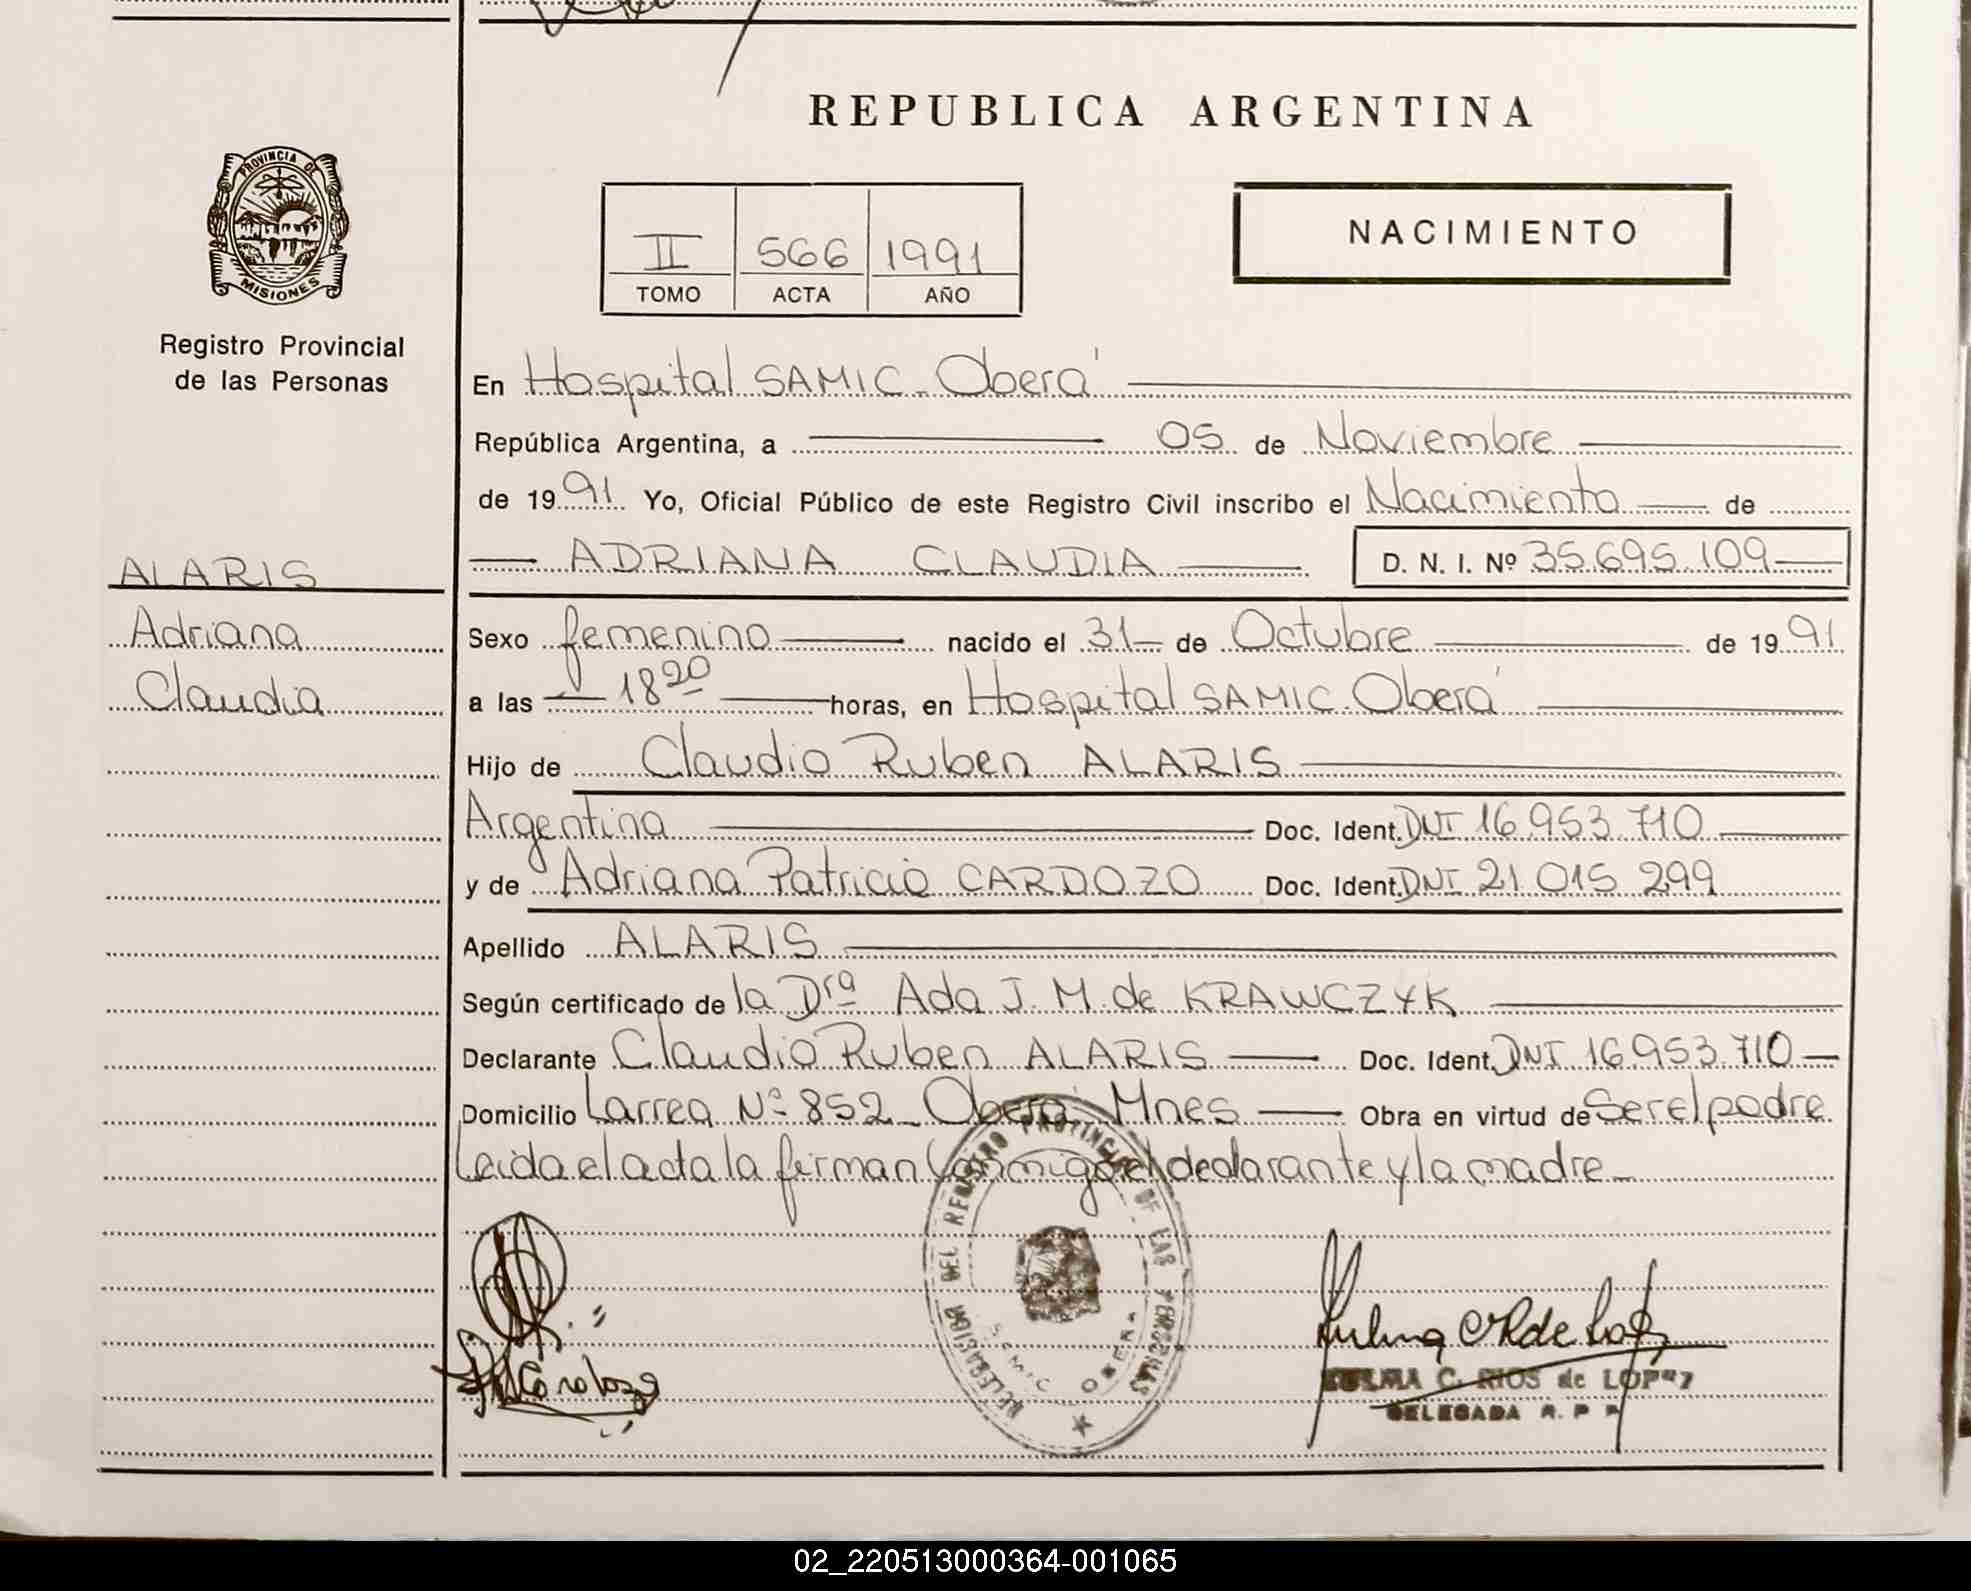 REPUBLICA ARGENTINA
PROVINCIA DE
MISIONES
Registro Provincial
de las Personas
II 566 1991
TOMO ACTA AÑO
NACIMIENTO
En Hospital SAMIC - Oberá
República Argentina, a 05 de Noviembre
de 1991 Yo, Oficial Público de este Registro Civil inscribo el Nacimiento de
ADRIANA CLAUDIA D. N. I. Nº 35.695.109
ALARIS
Adriana
Claudia
Sexo femenino nacido el 31 de Octubre de 1991
a las 18 20 horas, en Hospital SAMIC. Oberá
Hijo de Claudio Ruben ALARIS
Argentina Doc. Ident. DNI 16.953.710
y de Adriana Patricia CARDOZO Doc. Ident. DNI 21.015.299
Apellido ALARIS
Según certificado de la Dra Ada J. M. de KRAWCZYK
Declarante Claudio Ruben ALARIS Doc. Ident. DNI 16.953.710
Domicilio Larrea Nº 852 - Oberá Mnes Obra en virtud de Ser el padre.
Leida el acta la firman Conmigo el declarante y la madre
DELEGACION DEL REGISTRO PROVINCIAL DE LAS PERSONAS
OBERA
ZULMA C. RIOS de LOPEZ
DELEGADA R. P. P.
02_220513000364-001065